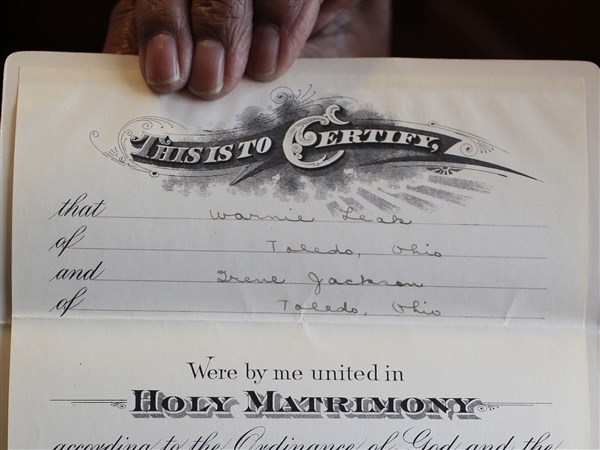 THIS IS TO CERTIFY,
that Warnie Leak
of Toledo, Ohio
and Irene Jackson
of Toledo, Ohio
Were by me united in
HOLY MATRIMONY
according to the Ordinance of God and the